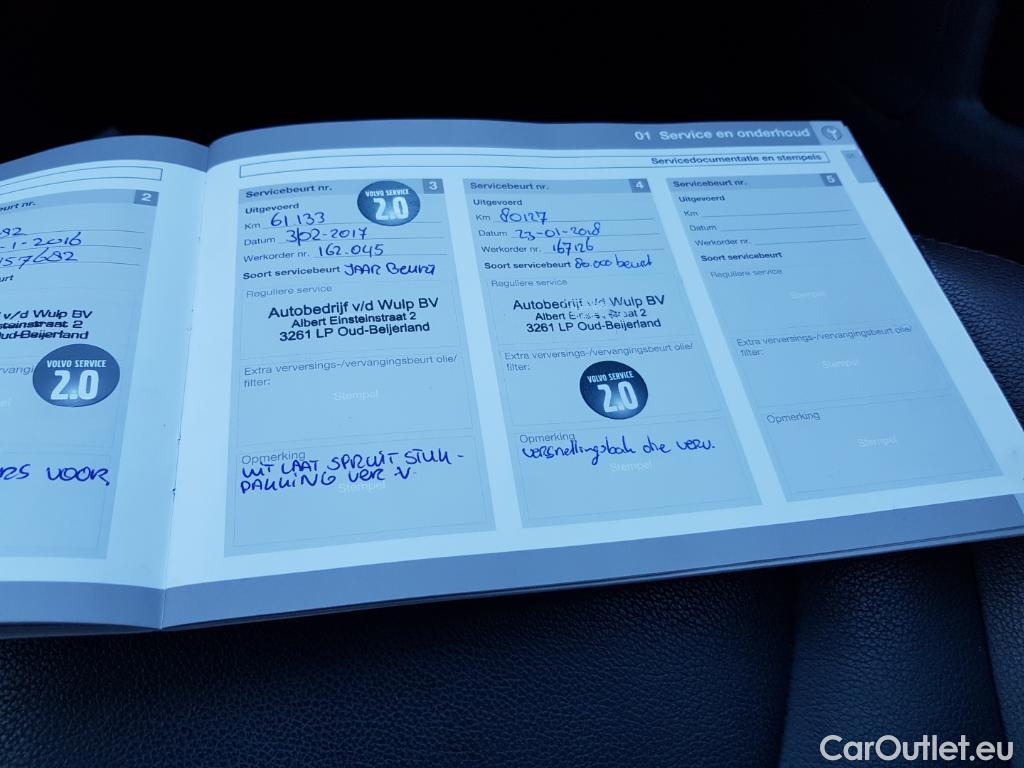 01 Service en onderhoud
Servicedocumentatie en stempels
01
2
urt nr.
-1-2016
157682
urt
v/d Wulp BV
Einsteinstraat 2
Oud-Beijerland
VOLVO SERVICE
2.0
VOOR,
Servicebeurt nr.
3
VOLVO SERVICE
2.0
Uitgevoerd
Km 61133
Datum 3/02-2017
Werkorder nr. 162.045
Soort servicebeurt JAAR Beurt
Reguliere service
Autobedrijf v/d Wulp BV
Albert Einsteinstraat 2
3261 LP Oud-Beijerland
Extra verversings-/vervangingsbeurt olie/
filter:
Stempel
Opmerking
UIT LAAT SPRUIT STUK-
PAKKING VER.V.
Stempel
Servicebeurt nr.
4
Uitgevoerd
Km 80127
Datum 23-01-2018
Werkorder nr. 167126
Soort servicebeurt 80.000 beurt
Reguliere service
Autobedrijf v/d Wulp BV
Albert Einsteinstraat 2
3261 LP Oud-Beijerland
Extra verversings-/vervangingsbeurt olie/
filter:
VOLVO SERVICE
2.0
Opmerking
versnellingsbak olie verv.
Stempel
Servicebeurt nr.
5
Uitgevoerd
Km
Datum
Werkorder nr.
Soort servicebeurt
Reguliere service
Stempel
Extra verversings-/vervangingsbeurt olie/
filter:
Stempel
Opmerking
Stempel
CarOutlet.eu